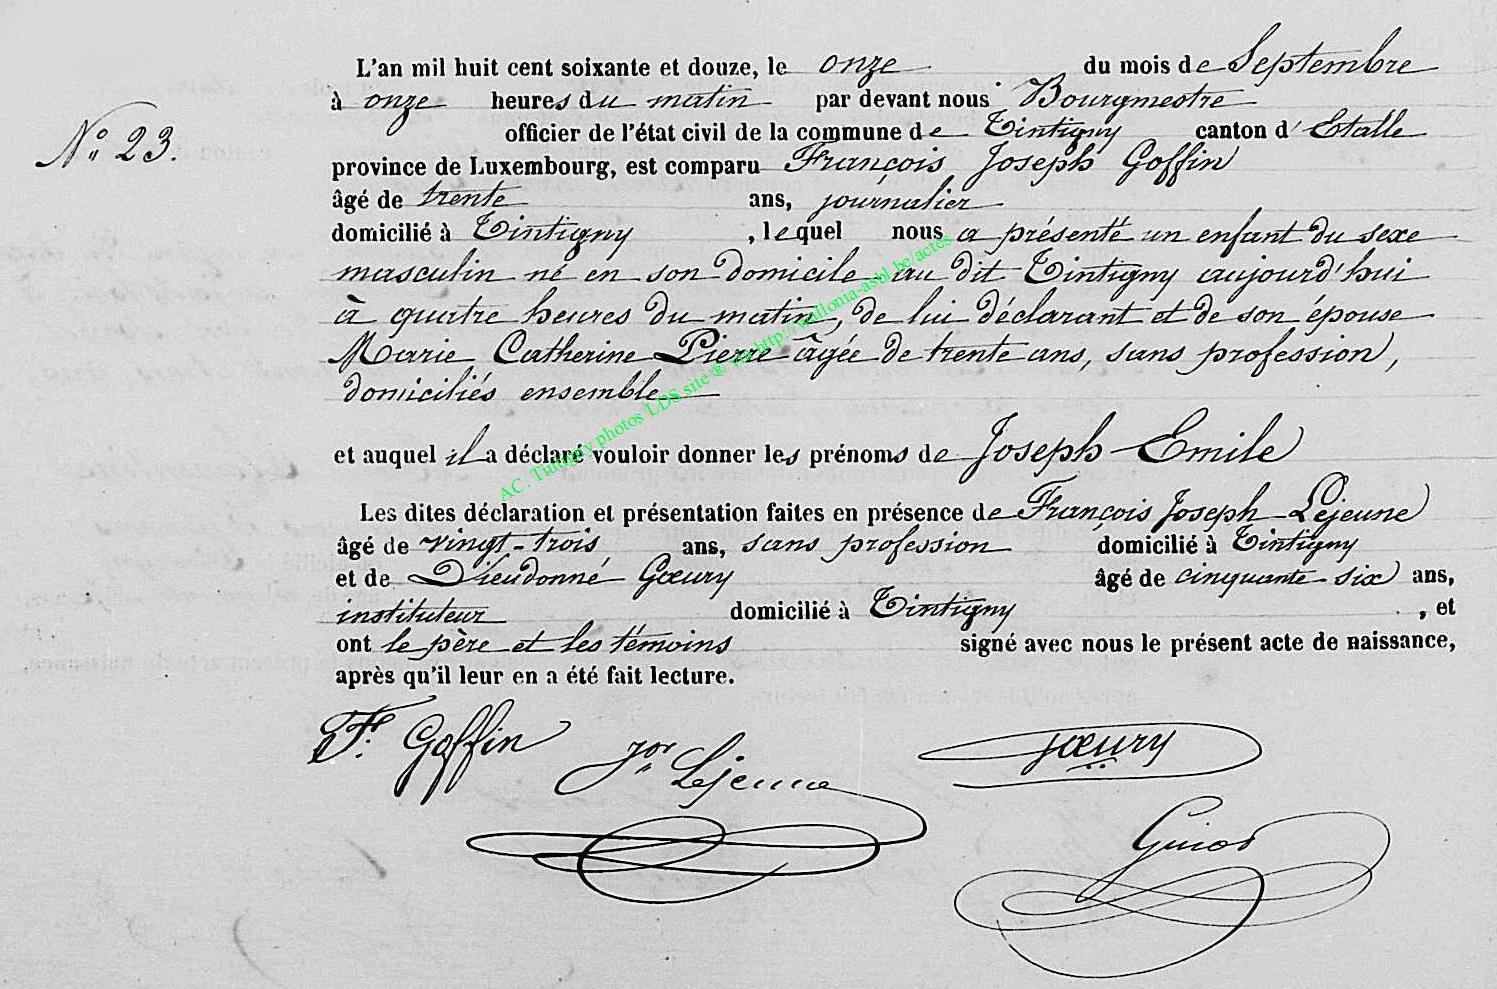 L'an mil huit cent soixante et douze, le onze du mois de Septembre
à onze heures du matin par devant nous Bourgmestre
N° 23.
officier de l'état civil de la commune de Tintigny canton d'Etalle
province de Luxembourg, est comparu François Joseph Goffin
âgé de trente ans, journalier
domicilié à Tintigny, lequel nous a présenté un enfant du sexe
masculin né en son domicile au dit Tintigny aujourd'hui
à quatre heures du matin, de lui déclarant et de son épouse
Marie Catherine Pierre âgée de trente ans, sans profession,
domiciliés ensemble
AC. Tintigny photos LDS site ® via http://wallonia-asbl.be/actes
et auquel il a déclaré vouloir donner les prénoms de Joseph-Emile
Les dites déclaration et présentation faites en présence de François Joseph Lejeune
âgé de vingt-trois ans, sans profession domicilié à Tintigny
et de Dieudonné Gœury âgé de cinquante-six ans,
instituteur domicilié à Tintigny, et
ont le père et les témoins signé avec nous le présent acte de naissance,
après qu'il leur en a été fait lecture.
F. Goffin
Lejeune
Gœury